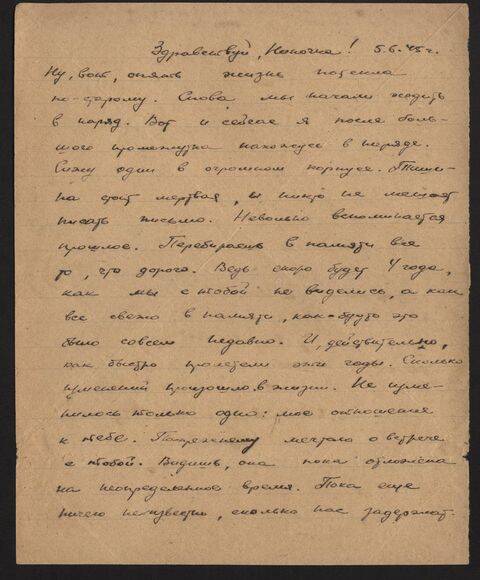 Здравствуй, Ниночка! 5.6.45 г.
Ну, вот, опять жизнь потекла
по-старому. Снова мы начали ходить
в наряд. Вот и сейчас я после боль-
шого промежутка нахожусь в наряде.
Сижу один в огромном корпусе. Тиши-
на стоит мертвая, и никто не мешает
писать письмо. Невольно вспоминается
прошлое. Перебираешь в памяти все
то, что дорого. Ведь скоро будет 4 года,
как мы с тобой не виделись, а как
все свежо в памяти, как-будто это
было совсем недавно. И, действительно,
как быстро пролетели эти годы. Сколько
изменений произошло в жизни. Не изме-
нилось только одно: мое отношение
к тебе. Попрежнему мечтаю о встрече
с тобой. Видишь, она пока отложена
на неопределенное время. Пока еще
ничего неизвестно, сколько нас задержат.